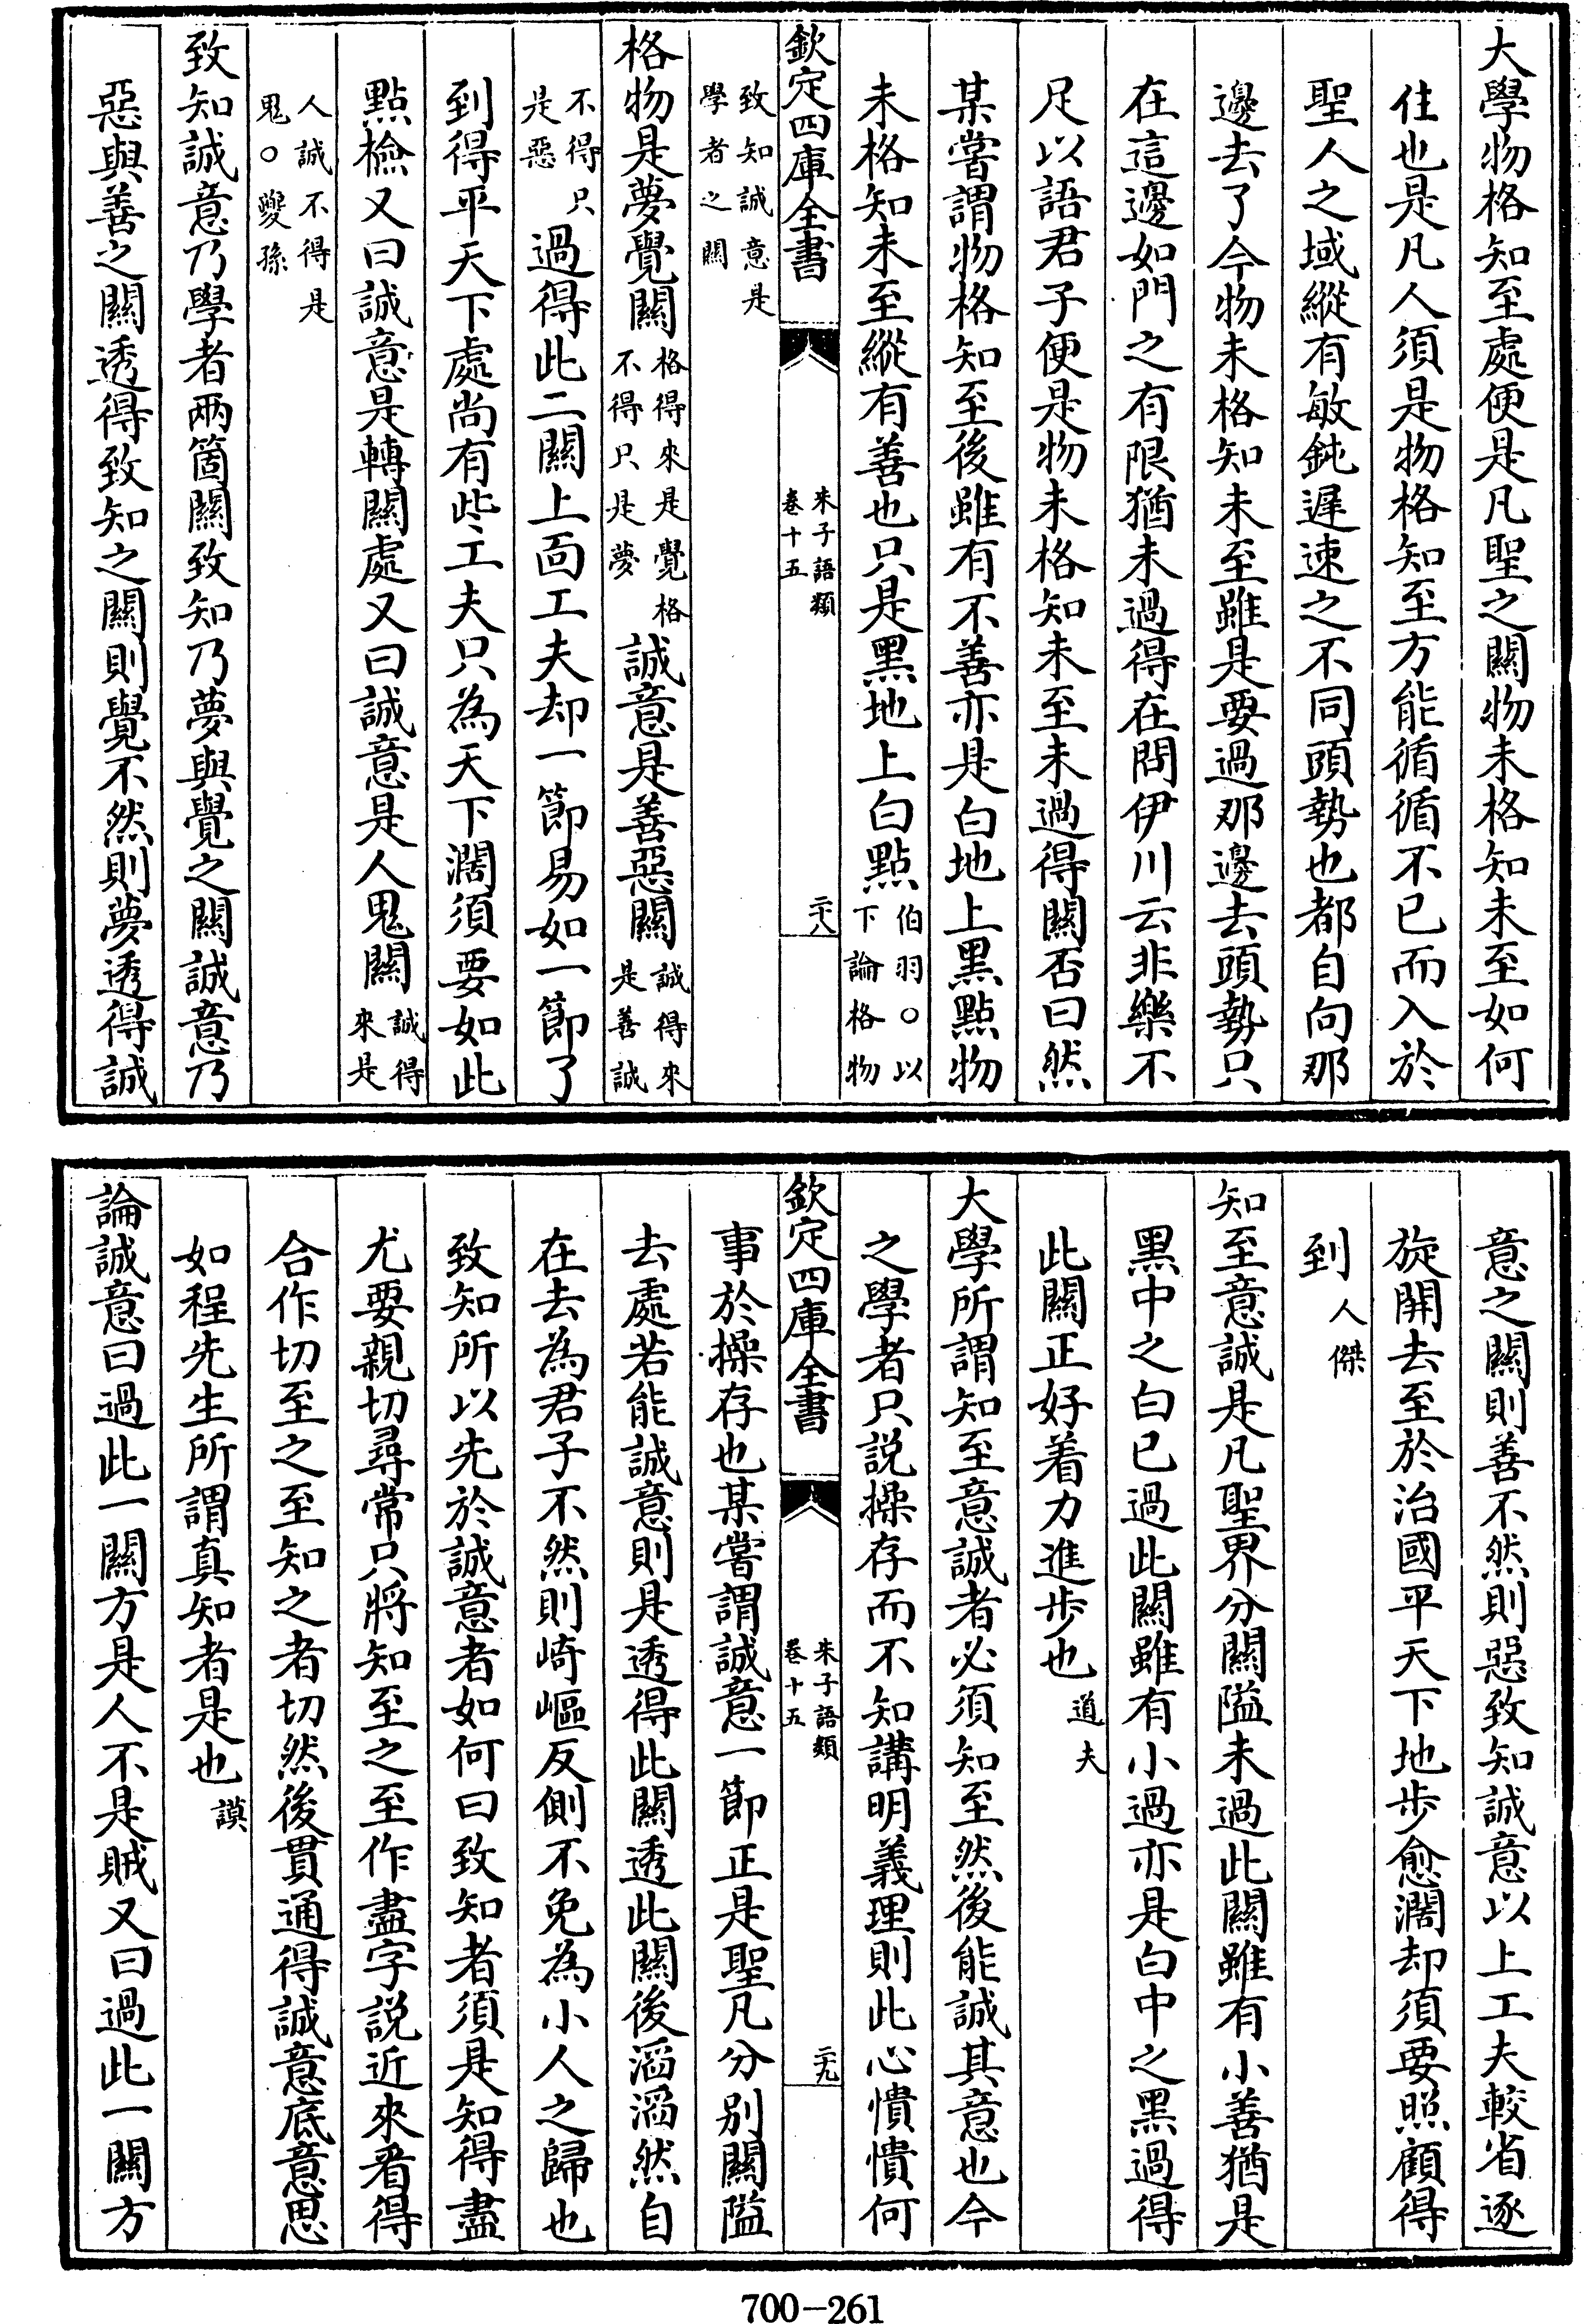 大學物格知至處便是凡聖之關物未格知未至如何
住也是凡人須是物格知至方能循循不已而入於
聖人之域縱有敏鈍遲速之不同頭勢也都自向那
邊去了今物未格知未至雖是要過那邊去頭勢只
在這邊如門之有限猶未過得在問伊川云非樂不
足以語君子便是物未格知未至未過得關否曰然
某嘗謂物格知至後雖有不善亦是白地上黑點物
未格知未至縱有善也只是黑地上白點伯羽○以
下論格物
欽定四庫全書
朱子語類
卷十五
二十八
致知誠意是
學者之關
格物是夢覺關格得來是覺格
不得只是夢誠意是善惡關誠得來
是善誠
不得只
是惡過得此二關上面工夫却一節易如一節了
到得平天下處尚有些工夫只為天下濶須要如此
點檢又曰誠意是轉關處又曰誠意是人鬼關誠得
來是
人誠不得是
鬼○夔孫
致知誠意乃學者兩箇關致知乃夢與覺之關誠意乃
惡與善之關透得致知之關則覺不然則夢透得誠
意之關則善不然則惡致知誠意以上工夫較省逐
旋開去至於治國平天下地步愈濶却須要照顧得
到人傑
知至意誠是凡聖界分關隘未過此關雖有小善猶是
黑中之白已過此關雖有小過亦是白中之黑過得
此關正好着力進步也道夫
大學所謂知至意誠者必須知至然後能誠其意也今
之學者只説操存而不知講明義理則此心憒憒何
欽定四庫全書
朱子語類
卷十五
二十九
事於操存也某嘗謂誠意一節正是聖凡分別關隘
去處若能誠意則是透得此關透此關後滔滔然自
在去為君子不然則崎嶇反側不免為小人之歸也
致知所以先於誠意者如何曰致知者須是知得盡
尤要親切尋常只將知至之至作盡字説近來看得
合作切至之至知之者切然後貫通得誠意底意思
如程先生所謂真知者是也謨
論誠意曰過此一關方是人不是賊又曰過此一關方
700-261